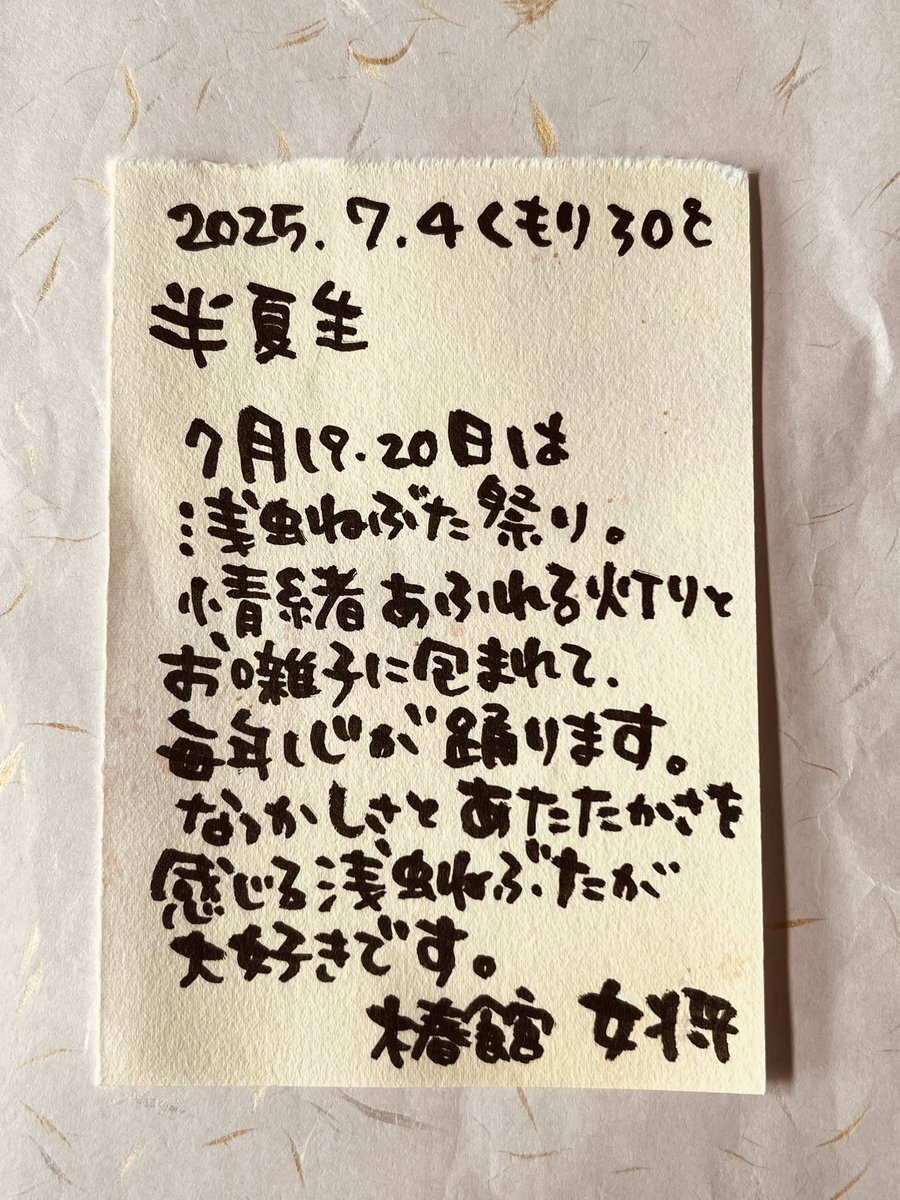 2025.7.4くもり30ど
半夏生
7月19.20日は
浅虫ねぶた祭り。
情緒あふれる灯りと
お囃子に包まれて、
毎年心が踊ります。
なつかしさとあたたかさを
感じる浅虫ねぶたが
大好きです。
椿館 女将